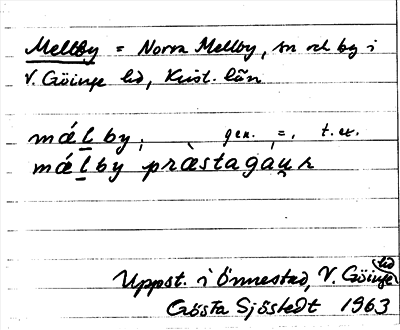 Mellby = Norra Mellby, sn och by i
V. Göinge hd, Krist. län
mǽḻby; gen. =, t. ex.
mǽḻby prǽstagáu̯r
Uppst. i Önnestad, V. Göinge hd
Gösta Sjöstedt 1963